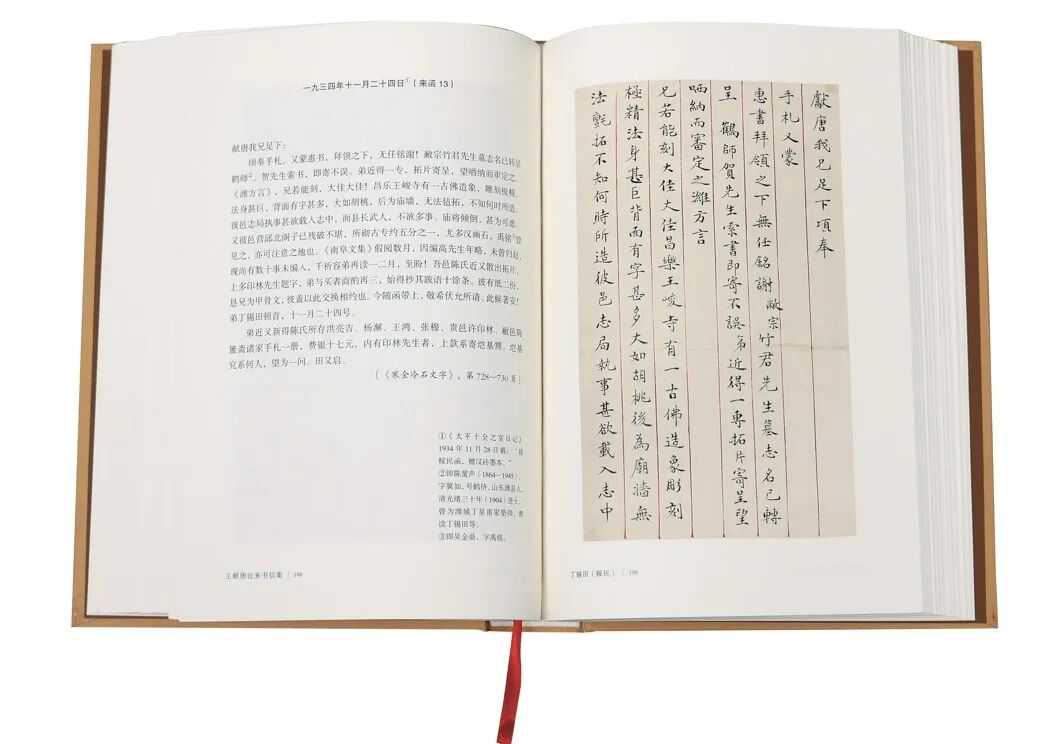 一九三四年十一月二十四日①(来函 13)
献唐我兄足下:
顷奉手札,又蒙惠书,拜领之下,无任铭谢!敝宗竹君先生墓志名已转呈
鹤师②。贺先生索书,即寄不误。弟近得一专,拓片寄呈,望哂纳而审定之。
《潍方言》,兄若能刻,大佳大佳!昌乐王峻寺有一古佛造象,雕刻极精,
法身甚巨,背面有字甚多,大如胡桃,后为庙墙,无法毡拓,不知何时所造。
彼邑志局执事甚欲载人志中,而县长武人,不欲多事。庙将倾倒,甚为可虑。
又彼邑营邱北阁子已残破不堪,所砌古专约五分之一,尤多汉画石,禹铭③曾
见之,亦可注意之地也。《南阜文集》假阅数月,因编高先生年略,未曾归赵,
现尚有数十事未编人,千祈容弟再读一二月,至盼!吾邑陈氏近又散出拓片,
上多印林先生题字,弟与买者商酌再三,始得抄其跋语十馀条。彼有纸二份,
恳兄为甲骨文,彼盖以此交换相约也。今随函带上,敬希伏允所请。此候著安!
弟丁锡田顿首,十一月二十四号。
弟近又新得陈氏所存洪亮吉、杨澥、王鸿、张穆、贵邑许印林、敝邑陈
簠斋诸家手札一册,费银十七元,内有印林先生者,上款系寄垲基甥。垲基
究系何人,望为一问。田又启。
〔《寒金冷石文字》,第 728—730 页〕
①《太平十全之室日记》
1934 年 11 月 28 日载:“接
稼民函,赠汉砖墨本。”
②即陈蜚声(1864—1945),
字翼如,号鹤侪,山东潍县人,
清光绪三十年(1904)进士。
曾为潍城丁星甫家塾师,教
读丁锡田等。
③即吴金鼎,字禹铭。
王献唐往来书信集 | 198
獻唐我兄足下頃奉
手札又蒙
惠書拜領之下無任銘謝敝宗竹君先生墓志名已轉
呈 鶴師賀先生索書即寄不誤弟近得一專拓片寄呈望
哂納而審定之濰方言
兄若能刻大佳大佳昌樂王峻寺有一古佛造象彫刻
極精法身甚巨背面有字甚多大如胡桃後為廟牆無
法氈拓不知何時所造彼邑志局執事甚欲載入志中
丁锡田(稼民) | 199